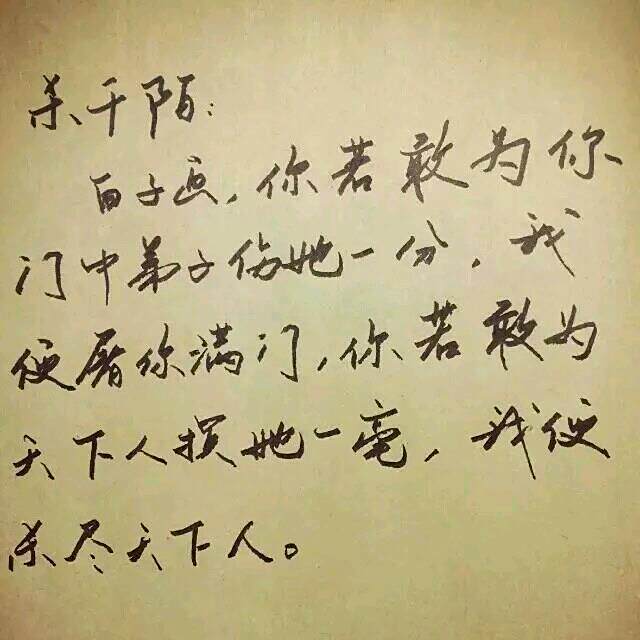 杀千陌：
白子画，你若敢为你
门中弟子伤她一分，我
便屠你满门，你若敢为
天下人损她一毫，我便
杀尽天下人。